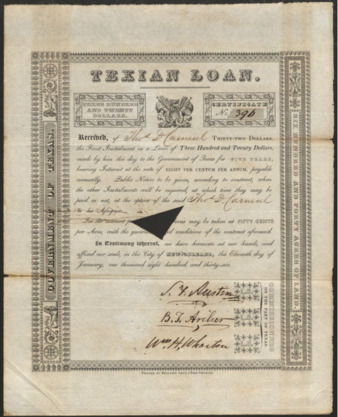 TEXIAN LOAN.
THREE HUNDRED
AND TWENTY
DOLLARS.
CERTIFICATE
No. 390
Received, of Thos. D. Carneal THIRTY-TWO DOLLARS,
the First Instalment in a Loan of Three Hundred and Twenty Dollars,
made by him this day to the Government of Texas for FIVE YEARS,
bearing Interest at the rate of EIGHT PER CENTUM PER ANNUM, payable
annually. Public Notice to be given, according to contract, when
the other Instalments will be required, at which time they may be
paid or not, at the option of the said Thos. D. Carneal
or his Assigns
may be taken at FIFTY CENTS
per Acre, with the conditions of the contract aforesaid.
In Testimony Whereof, we have hereunto set our hands, and
affixed our seals, in the City of NEW-ORLEANS, this Eleventh day of
January, one thousand eight hundred and thirty-six.
S. F. Austin
B. T. Archer
Wm. H. Wharton
COMMISSIONERS
ON THE PART OF TEXAS
GOVERNMENT OF TEXAS.
SIX HUNDRED AND FORTY ACRES OF LAND.